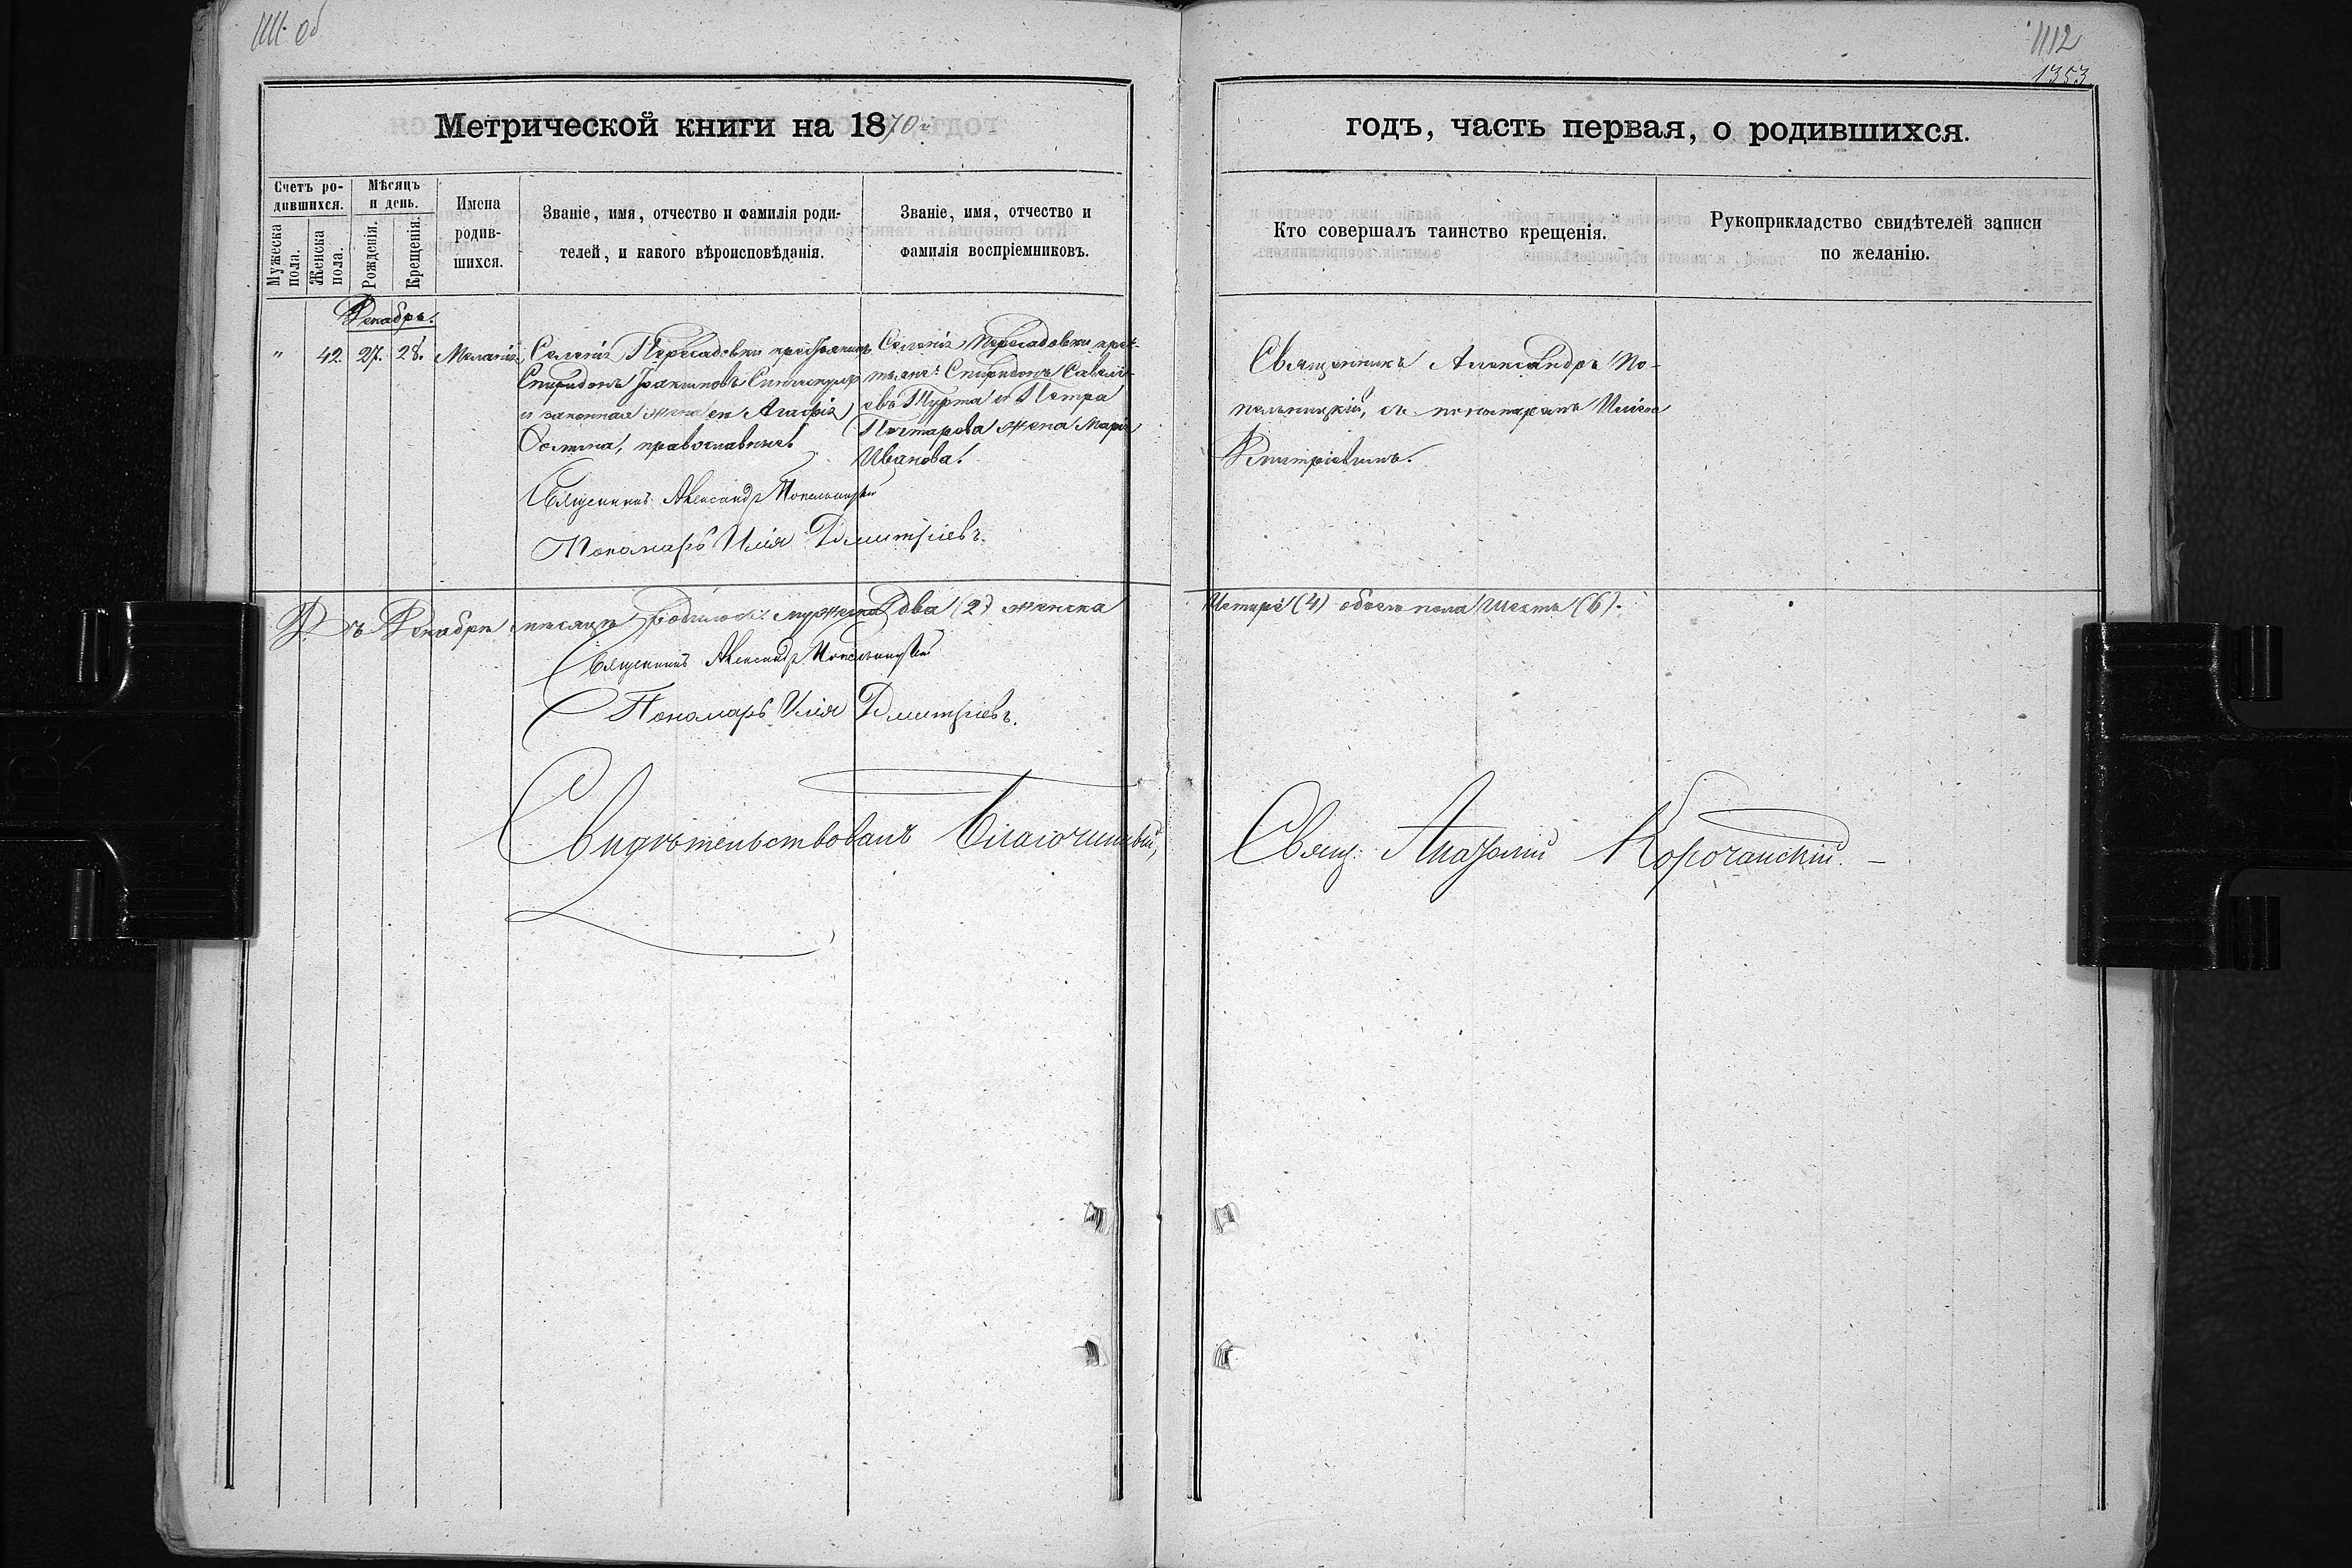 1111 об
1112
1353
Метрической книги на 1870 г.
годъ, часть первая, о родившихся.
Счетъ ро-
дившихся.
Мужеска пола.
Женска пола.
Мѣсяцъ
и день.
Рожденія.
Крещенія.
Имена
родив-
шихся.
Званіе, имя, отчество и фамилія роди-
телей, и какого вѣроисповѣданія.
Званіе, имя, отчество и
фамилія воспріемниковъ.
Кто совершалъ таинство крещенія.
Рукоприкладство свидѣтелей записи
по желанію.
Декабрь.
" 42. 27. 28. Меланія
Селенія Пересадовки крестьянинъ
Спиридонъ Іоакимовъ
и законная жена его Агафія
православные.
Селенія Пересадовки крес-
тьяне: Спиридонъ Савелі-
евъ Турта и Петра
жена Марія
Иванова.
Священникъ Александръ По-
пельницкій, съ пономаремъ Иліею
Димитріевымъ.
Священникъ Александръ Попельницкій
Пономарь Илія Димитріевъ.
Въ Декабрѣ мѣсяцѣ родилось: мужеска два (2) женска
четыре (4) обоего пола шесть (6).
Священникъ Александръ Попельницкій
Пономарь Илія Димитріевъ.
Свидѣтельствовалъ Благочинный,
Свящ: Анатолій Корочанскій. –